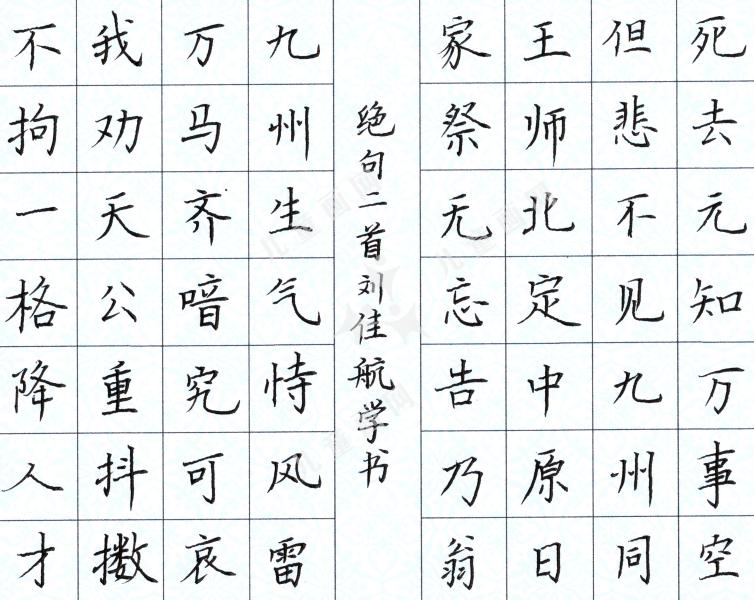 死去元知万事空
但悲不见九州同
王师北定中原日
家祭无忘告乃翁
绝句二首刘佳航学书
九州生气恃风雷
万马齐喑究可哀
我劝天公重抖擞
不拘一格降人才
儿童画网
儿童画网
儿童画网